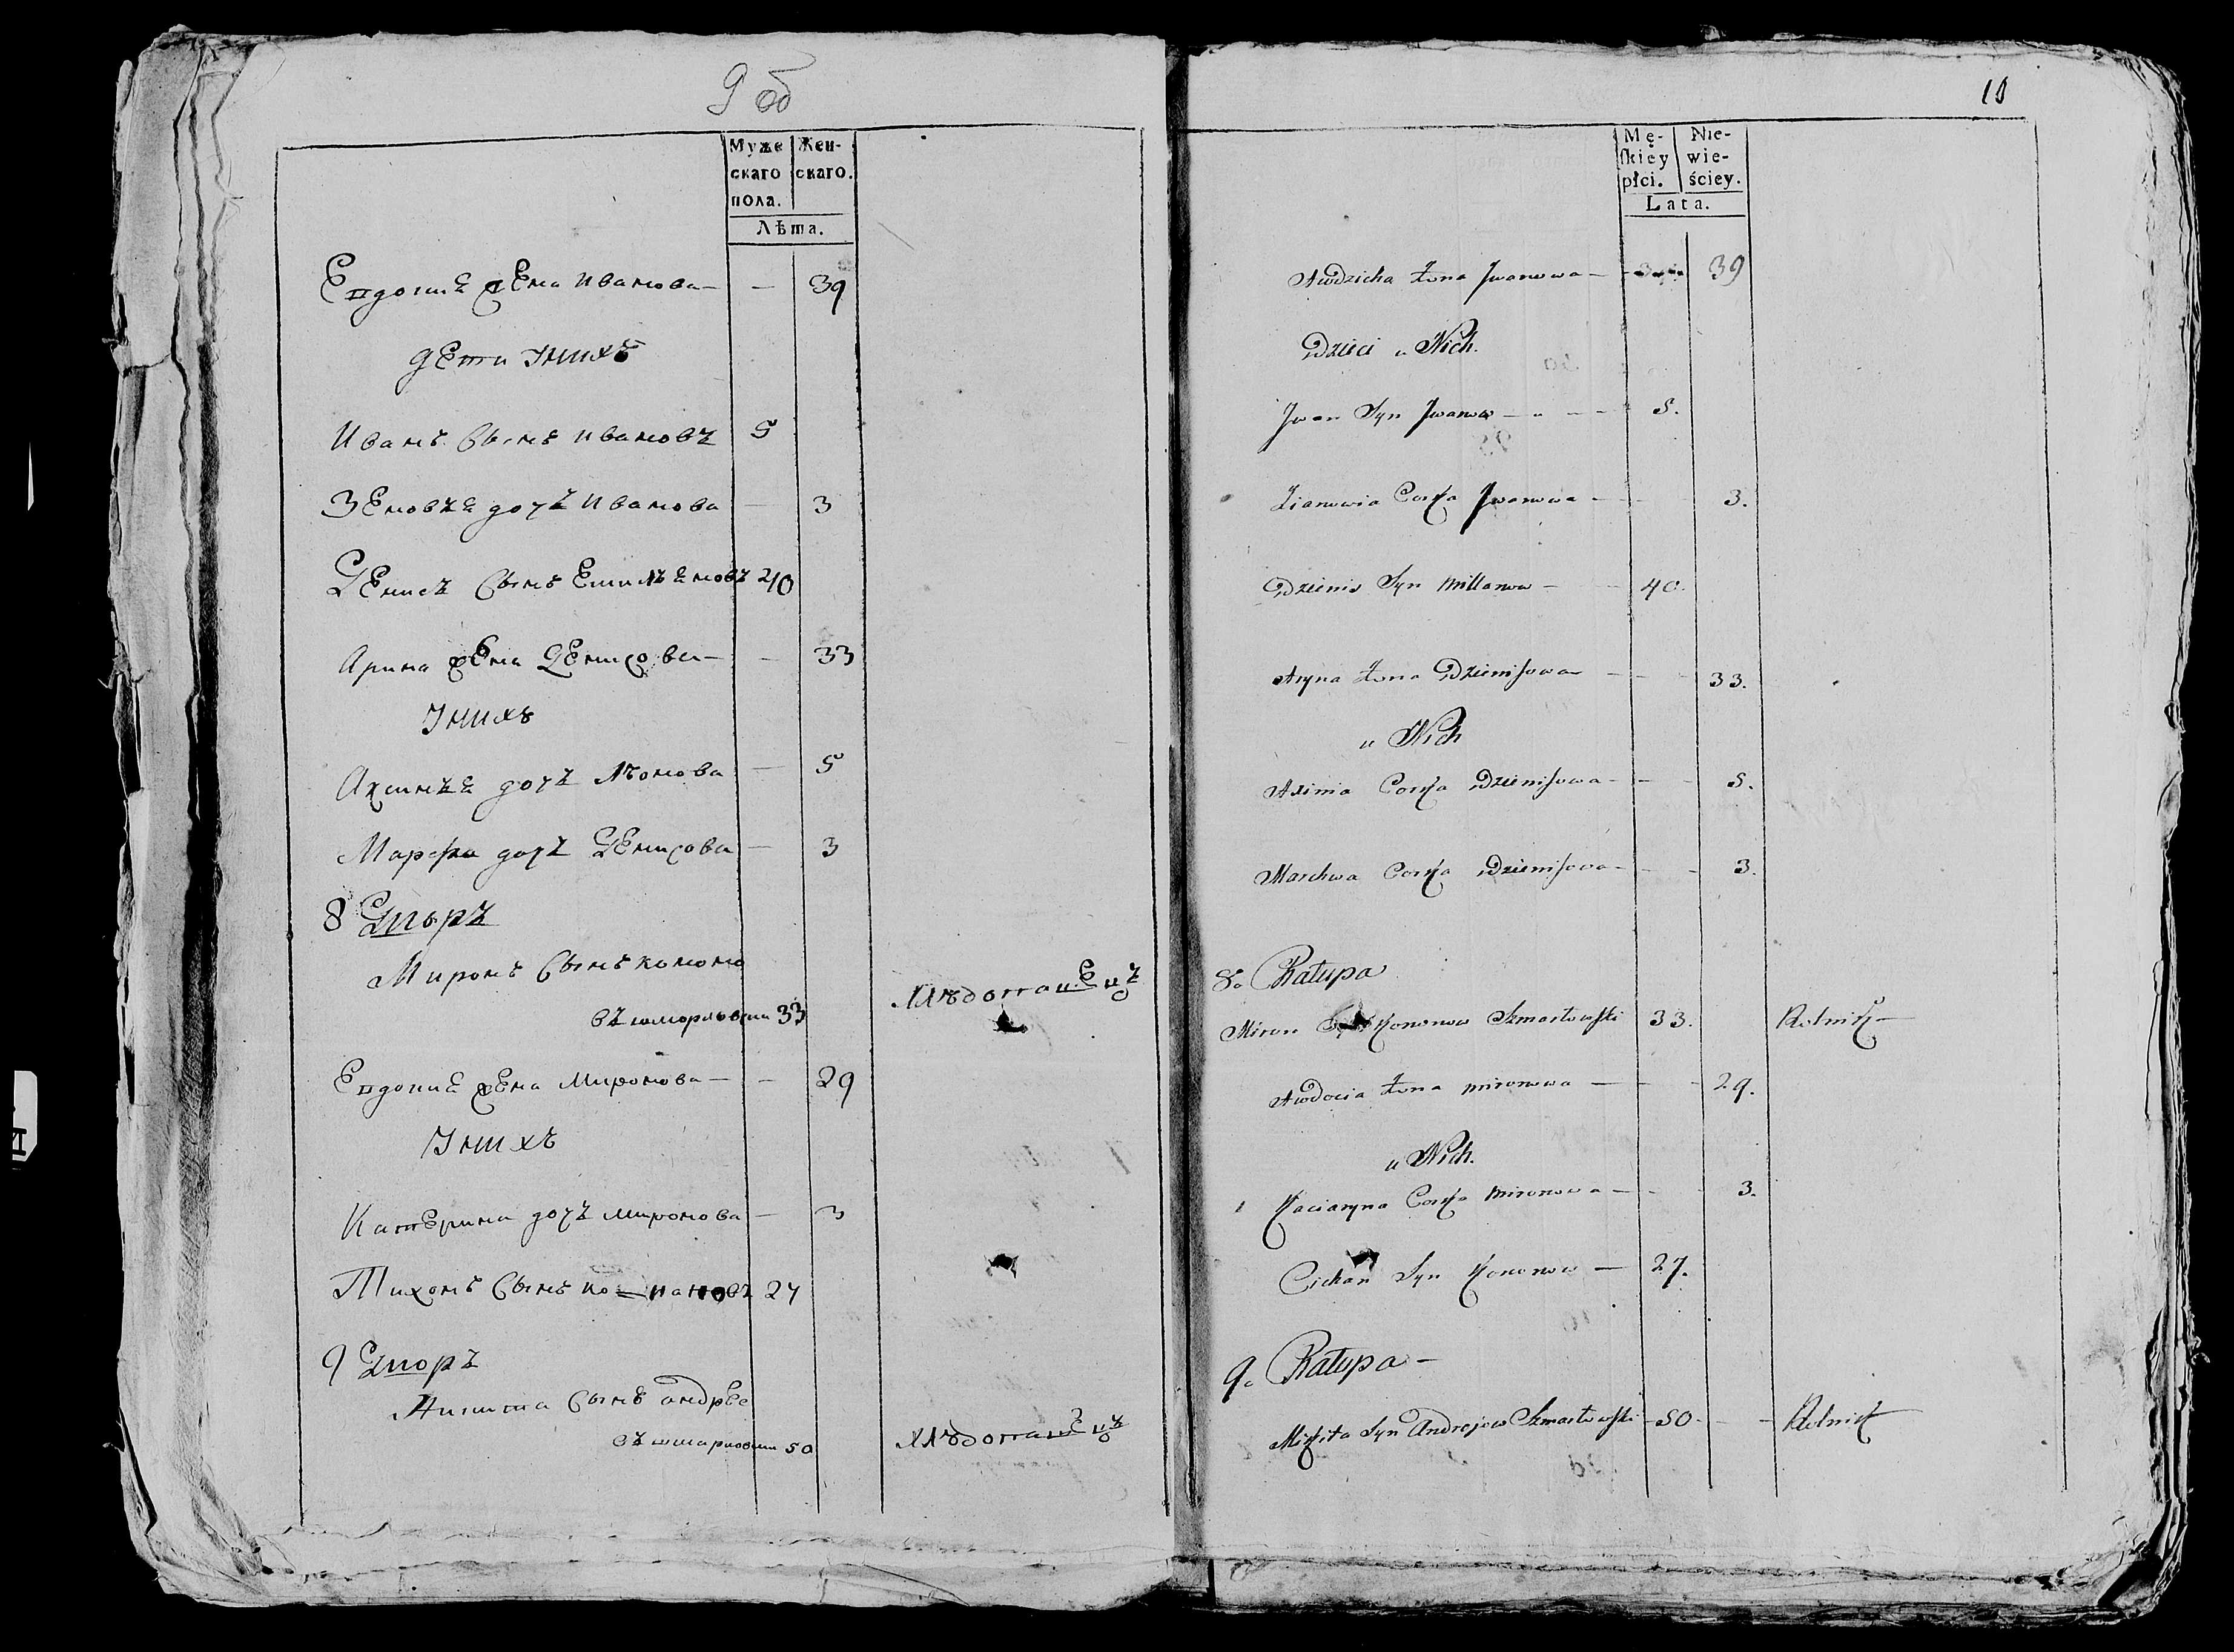 9 об
Муже
скаго
пола.
Жен-
скаго.
Лѣта.
Евдокия жена Иванова — — 39
дети унихъ
Иванъ сынъ Ивановъ 5
Зеновъя дочъ Иванова — 3
Денисъ сынъ Емилъяновъ 40
Арина жена Денисова — — 33
Унихъ
Аксинъя дочъ — 5
Марфа дочъ Денисова — 3
8 Дворъ
Миронъ сынъ Кононо
въ 33
Хлъбопашецъ
Евдокия жена Миронова — — 29
Унихъ
Катерина дочъ Миронова — 3
Тихонъ сынъ 27
9 Дворъ
Никита сынъ Андрее
въ 50
Хлъбопашецъ
10
Mę-
skiey
płci.
Nie-
wie-
ściey.
Lata.
Awdzicha Żona Jwanowa — 39
Dzieci u Nich.
Jwan Syn Jwanow — 5.
Zianowia Corka Jwanowa — 3.
Dzienis Syn Millanow — 40.
Aryna Żona Dzienisowa — 33.
u Nich
Axinia Corka Dzienisowa — 5.
Marchwa Corka Dzienisowa — 3.
8. Chałupa
Miron Syn Kononow Szmarłowski 33. Rolnik —
Awdocia Żona Mironowa — 29.
u Nich.
Kaciaryna Corka Mironowa — 3.
Cichan Syn Kononow — 27.
9. Chałupa —
Mikita Syn Andrejew Szmarłowski — 50 — Rolnik